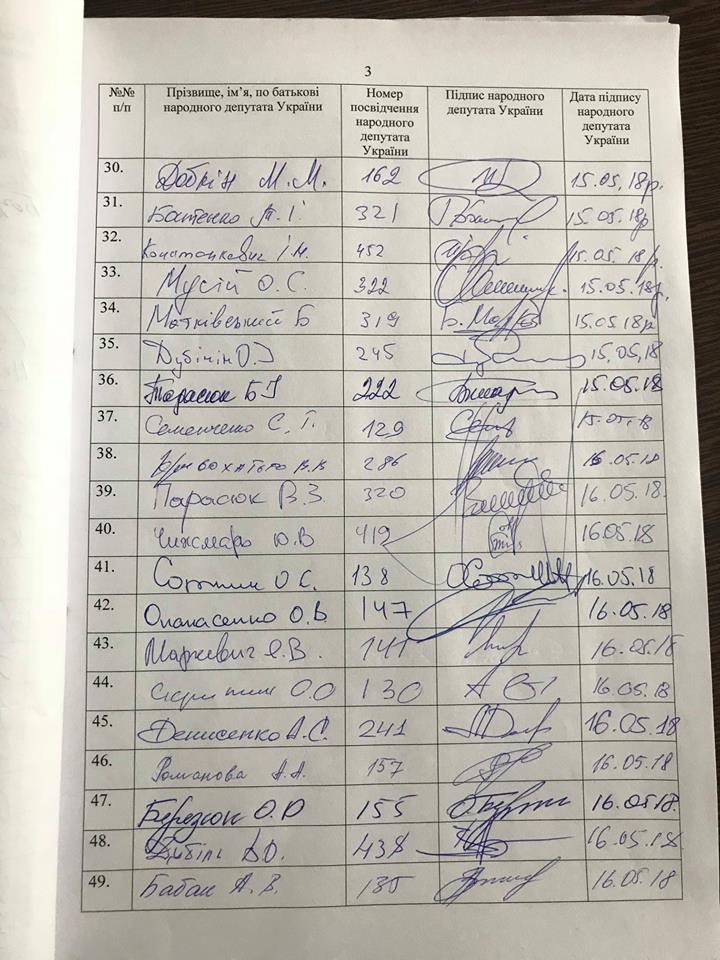 3
№№ п/п Прізвище, ім’я, по батькові народного депутата України Номер посвідчення народного депутата України Підпис народного депутата України Дата підпису народного депутата України
30. Добкін М.М. 162 15.05.18р.
31. Батенко Т.І. 321 15.05.18р
32. Констанкевич І.М. 452 15.05.18р.
33. Мусій О.С. 322 15.05.18р.
34. Матківський Б 319 Б. Матків 15.05.18р
35. Дубінін О.І 245 15.05.18
36. Тарасюк Б І 222 15.05.18
37. Семенченко С. І. 129 15.05.18
38. Кривохатько В.В 286 16.05.18
39. Парасюк В.З. 320 16.05.18.
40. Чижмарь Ю.В 419 16.05.18
41. О.С. 138 16.05.18
42. Опанасенко О.В. 147 16.05.18
43. Маркевич Я.В. 141 16.05.18
44. Скрипник О.О 130 16.05.18
45. Денисенко А.С. 241 16.05.18
46. Романова А.А. 157 16.05.18
47. Березюк О.Р 155 16.05.18.
48. 438 16.05.18
49. Бабак А.В. 135 16.05.18